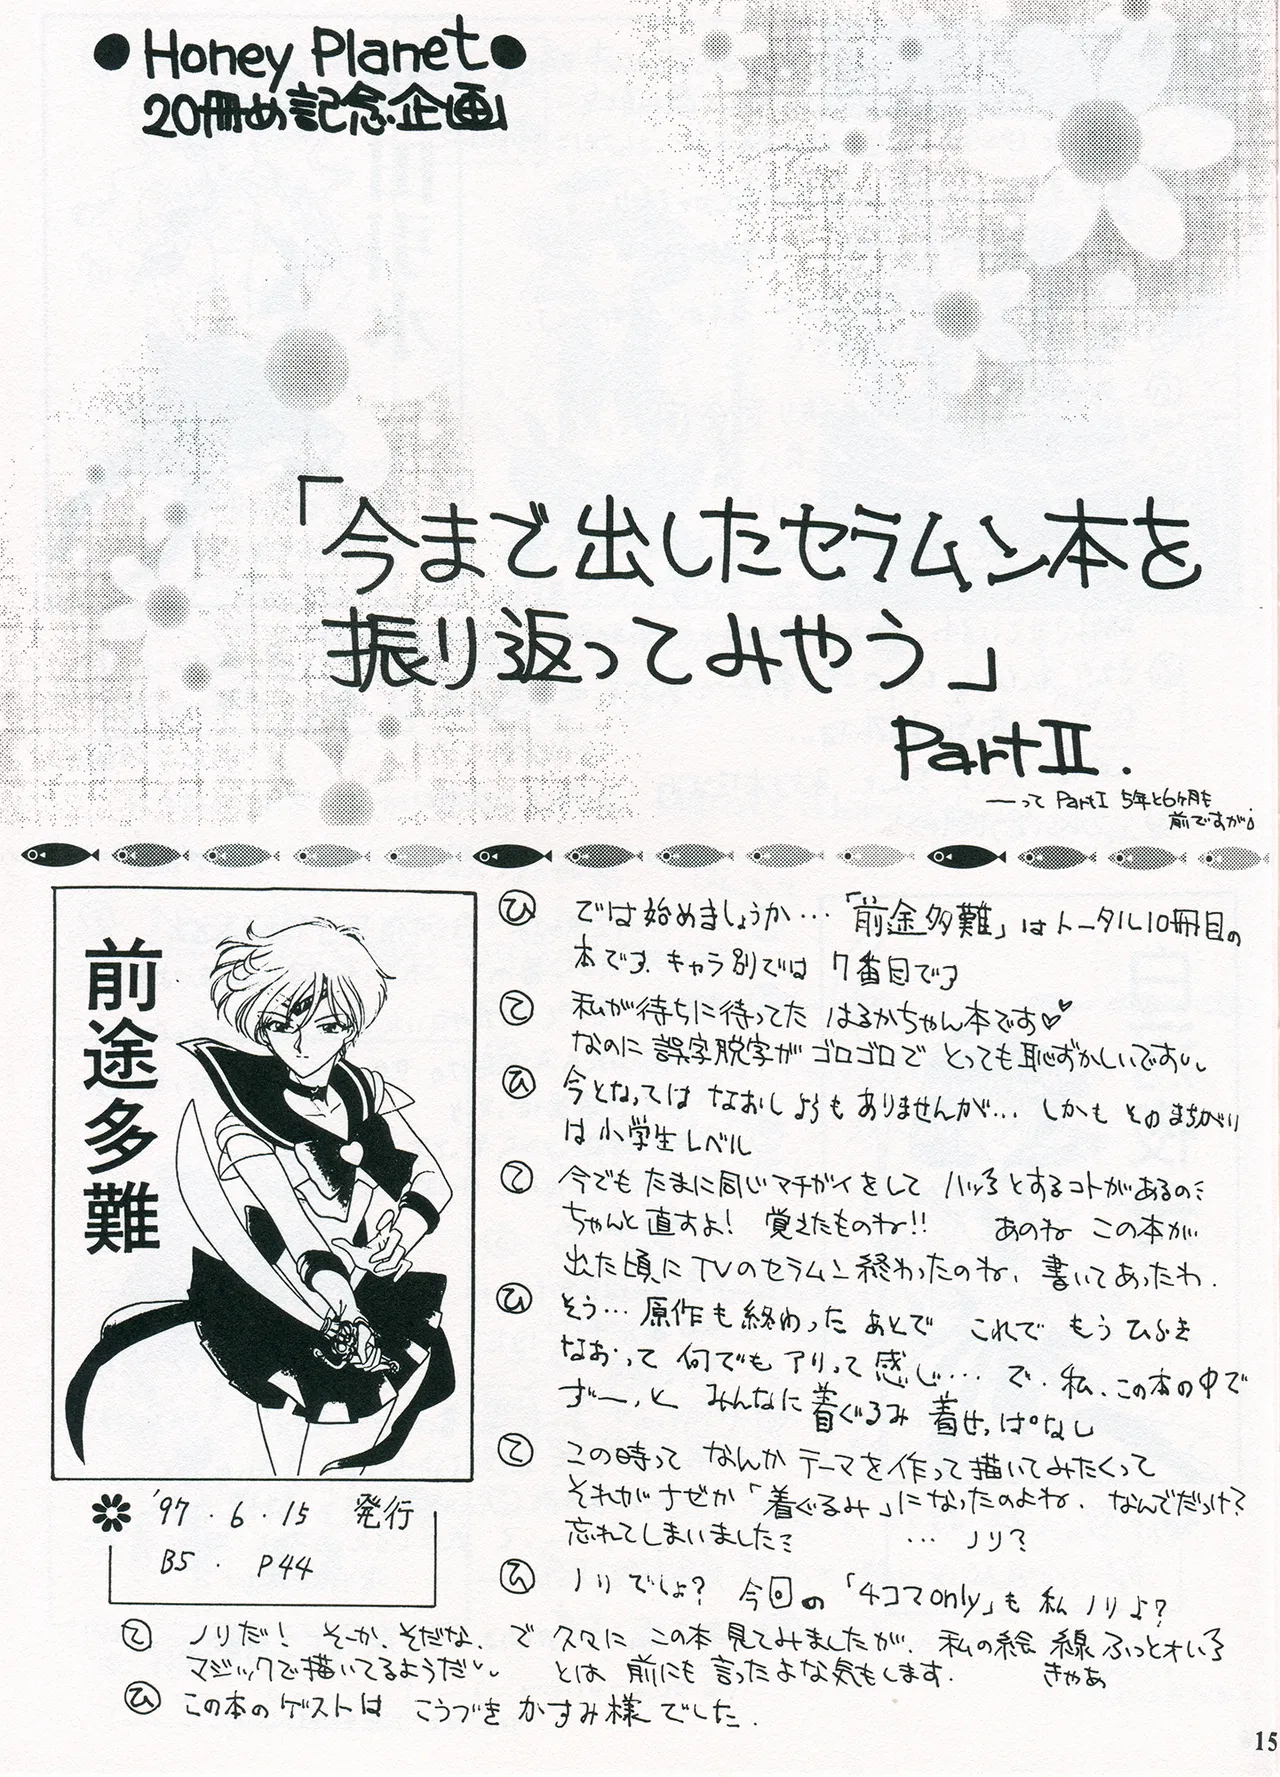 ●Honey Planet●
20冊め記念企画
「今まで出したセラムン本を
振り返ってみやう」
Part II.
——って Part I 5年と6ヶ月も
前ですが。
前途多難
'97.6.15 発行
B5. P44
ひ では始めましょうか…「前途多難」はトータル10冊目の
本です。キャラ別では 7番目です
て 私が待ちに待ってた はるかちゃん本です♡♡
なのに 誤字脱字がゴロゴロで とっても恥ずかしいです。
ひ 今となっては なおしようもありませんが… しかも そのまちがり
は小学生レベル
て 今でも たまに同じマチガイをして ハッとするコトがあるの
ちゃんと直すよ! 覚えたものね!! あのね この本が
出た頃に TVのセラムン終わったのね、書いてあったわ.
ひ そう… 原作も終わったあとで これで もう ひらき
なおって 何でもアリって感じ… で、私、この本の中で
ずーっと みんなに着ぐるみ 着せっぱなし
て この時って なんか テーマを作って描いてみたくって
それがナゼか「着ぐるみ」になったのよね、なんでだっけ?
忘れてしまいました … ノリ?
ひ ノリでしょ? 今回の「4コマonly」も 私 ノリよ?
て ノリだ! そーか、そだな、で 久々に この本 見てみましたが、私の絵 線ふっとォいろ
マジックで描いてるようだ。 とは 前にも言ったよな気もします. きゃあ
ひ この本のゲストは こうづき かすみ様でした.
15